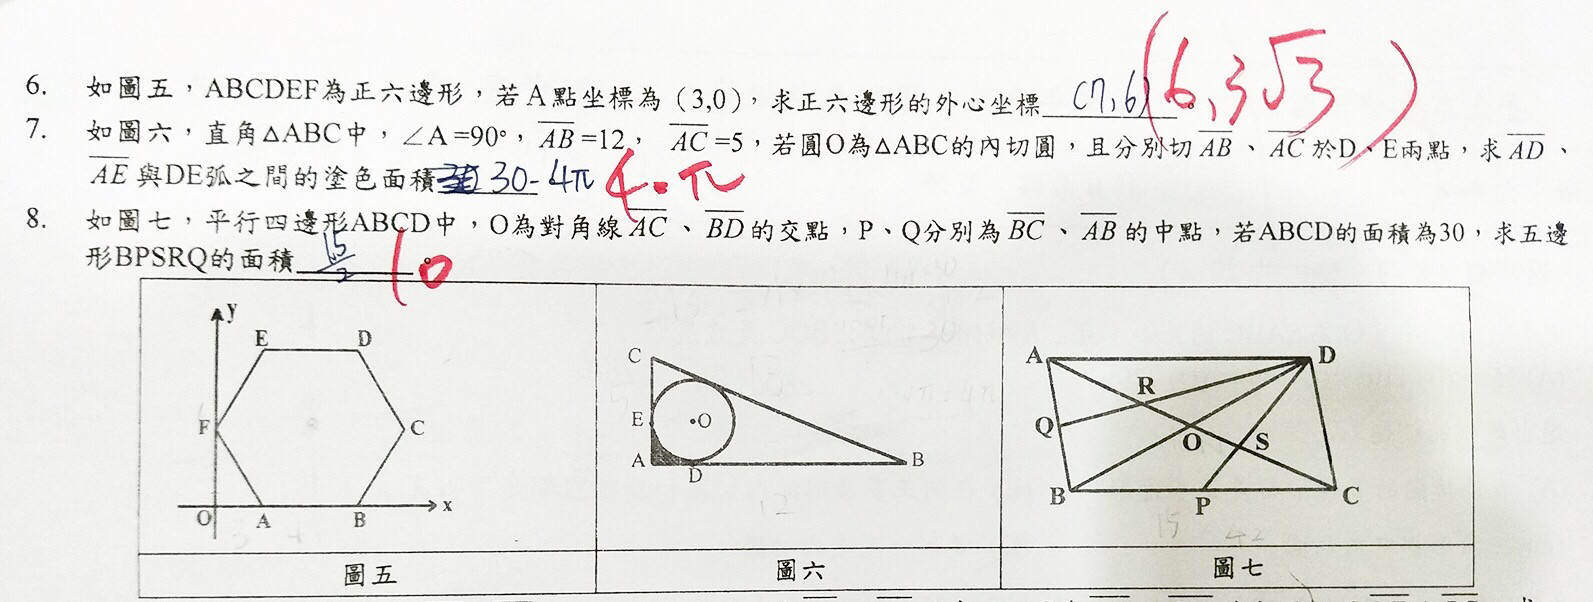 6. 如圖五，ABCDEF為正六邊形，若A點坐標為（3,0），求正六邊形的外心坐標 (7,6) (6,3√3)。
7. 如圖六，直角△ABC中，∠A=90°，AB=12，AC=5，若圓O為△ABC的內切圓，且分別切AB、AC於D、E兩點，求AD、
AE與DE弧之間的塗色面積 30-4π 4-π
8. 如圖七，平行四邊形ABCD中，O為對角線AC、BD的交點，P、Q分別為BC、AB的中點，若ABCD的面積為30，求五邊
形BPSRQ的面積 15/2。 10
y
E D
F C
O A B x
圖五
C
E O
A D B
圖六
A D
R
Q O S
B P C
圖七